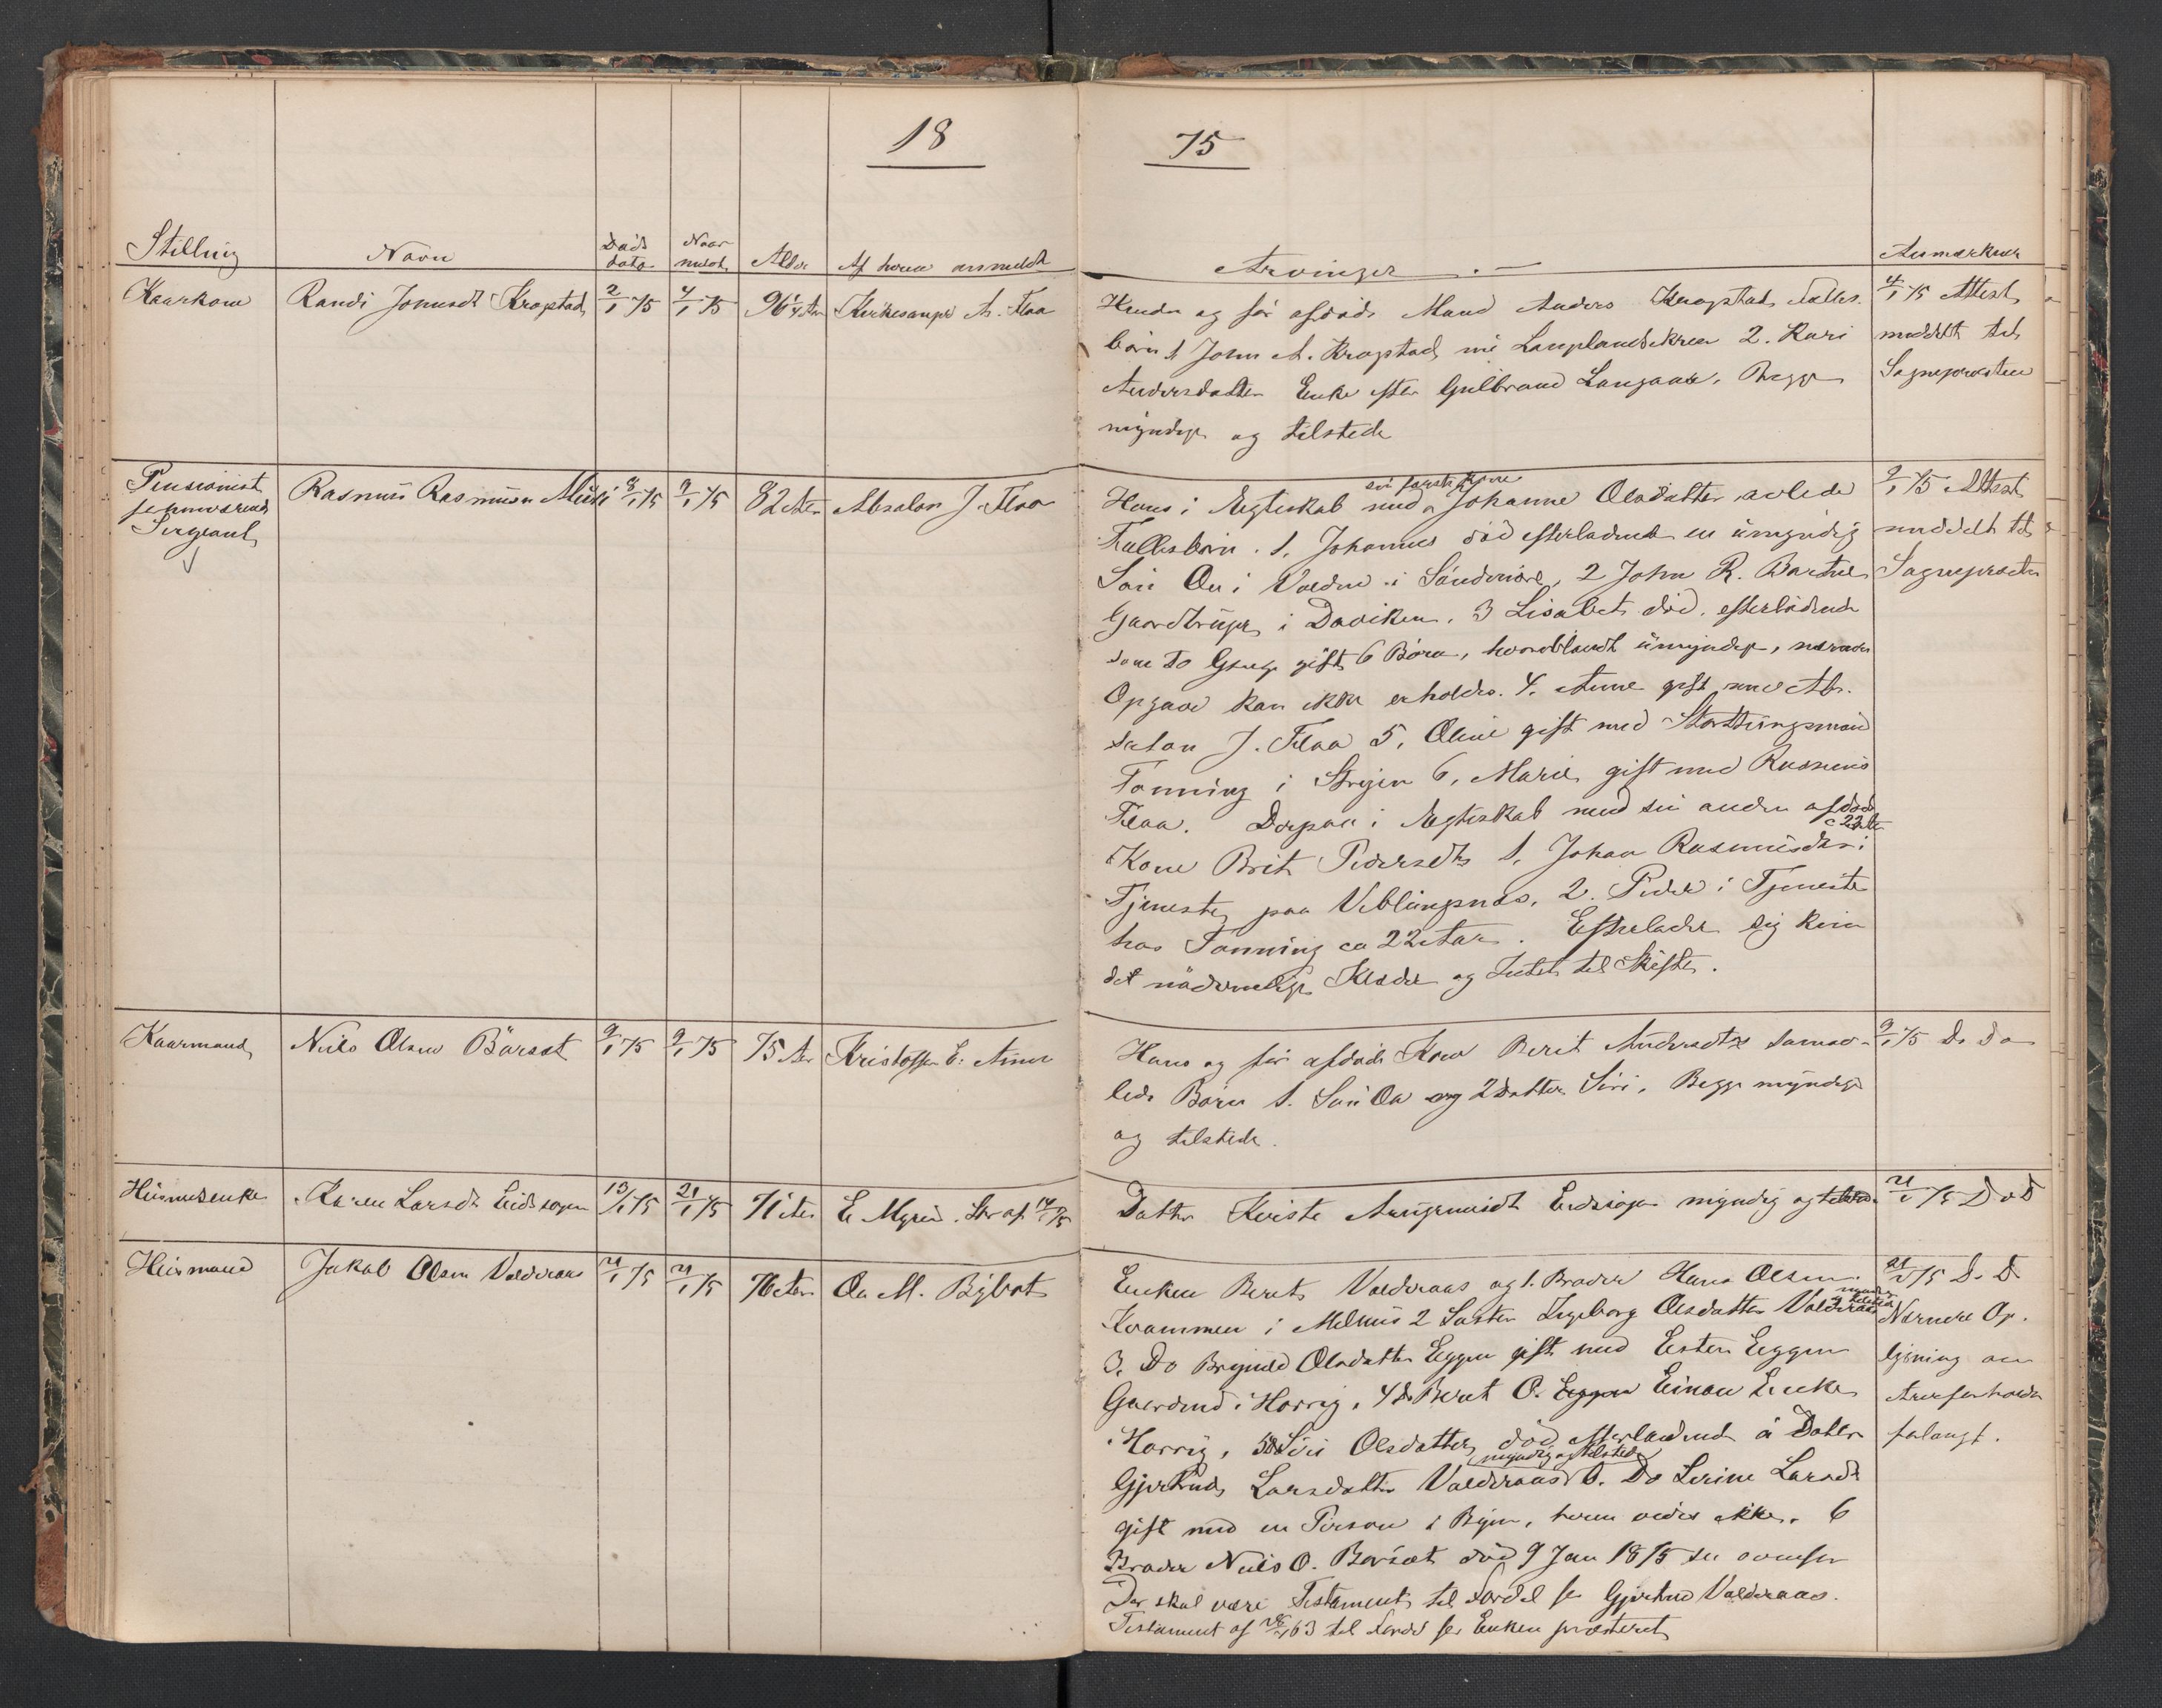 18
75
Stilling
Navn
Døds
dato
Naar
meldt
Alder
Af hvem anmeldt
Arvinger
Anmærkn
Kaarkone
Randi Jonsdt Kropstad
2/1 75
4/1 75
96 1/4 Aar
Kirkesanger A. Flaa
Hendes og før afdøde Mand Anders Kropstads Fælles-
børn 1 John A. Kropstad 2. Kari
Andersdatter Enke efter Gulbrand Langaas. Begge
myndige og tilstede
4/1 75 Attest
meddelt til
Sognepræsten
Pensionist
forhenværende
Sergeant
Rasmus Rasmusen
8/1 75
9/1 75
82 Aar
Absalon J. Flaa
sin første Kone
Hans i Ægteskab med Johanne Olsdatter avlede
Fællesbørn. 1. Johannes død efterladende en umyndig
Søn Ole i Volden i Søndmøre, 2 John R.
Gaardbruger i Daviken. 3 Lisabet død. efterladende
6 Børn, hvoriblandt umyndige, nærmere
Opgave kan ikke erholdes. 4. Anne gift med Ab-
salon J. Flaa 5. Oline gift med Storthingsmand
Tonning i Stryen 6. Marie gift med Rasmus
Flaa. Desuden i Ægteskab med sin anden afdøde
c 22 Aar
Kone Brit Pedersdtr 1. Johan Rasmussen i
Tjeneste paa Veblungsnæs. 2. Peder i Tjeneste
hos Tonning ca 22 Aar. Efterlader sig kun
det nødvendige Klæder og Intet til Skifte.
9/1 75 Attest
meddelt til
Sognepræsten
Kaarmand
Nils Olsen Børset
9/1 75
9/1 75
75 Aar
Kristoffer E.
Hans og før afdøde Kone Berit Andersdtr samav-
lede Børn 1. Søn Ole og 2 Datter Siri. Begge myndige
og tilstede.
9/1 75 Do Do
Huusmdsenke
Karen Larsdt
13/1 75
21/1 75
71 Aar
E Myren. Skr af 14/1 75
Datter Kirste myndig og tilstede
21/1 75 Do D
Huusmand
Jakob Olsen Valdraas
21/1 75
21/1 75
76 Aar
Ole M.
Enken Berit Valdraas og 1. Broder Hans Olsen
myndig
og tilstede
Kvammen i Melhus 2 Søster Ingeborg Olsdatter Valdraas
3. Do Brynild Olsdatter Eggen gift med Esten Eggen
Gaardmd i Horrig, 4 Do Berit O. Einan Enke
Horrig, 5 Do Siri Olsdatter, død efterladende 1 Datter
myndig og tilstede
Gjertrud Larsdatter Valdraas 6. Do Serine Larsdt
gift med en Person i Byen, hvem vides ikke. 6
Broder Nils O. Børset død 9 Jan 1875 se ovenfor
Der skal være Testament til Fordel for Gjertrud Valdraas.
Testament af 63 til Fordel for Enken præsteret
21/1 75 D. D.
Nærmere Op-
lysning om
Arveforholde
forlangt.